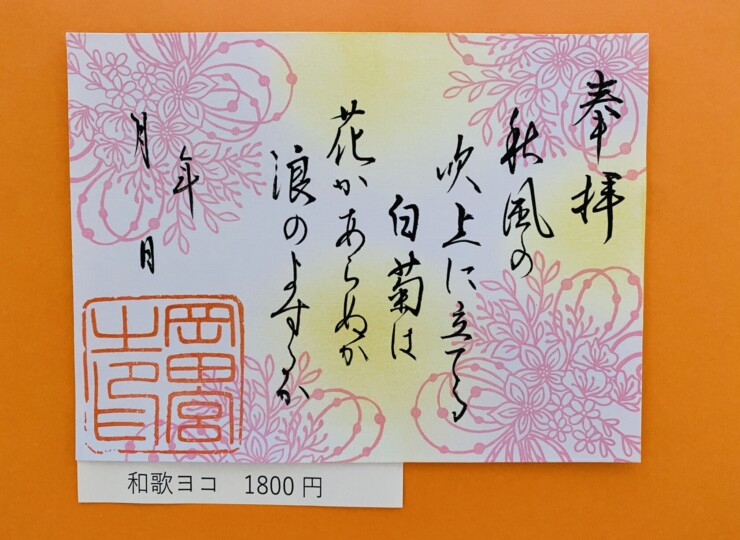 奉拝
秋風の
吹上に立てる
白菊は
花かあらぬか
浪のよするか
年
月 日
岡田宮
之印
和歌ヨコ 1800円